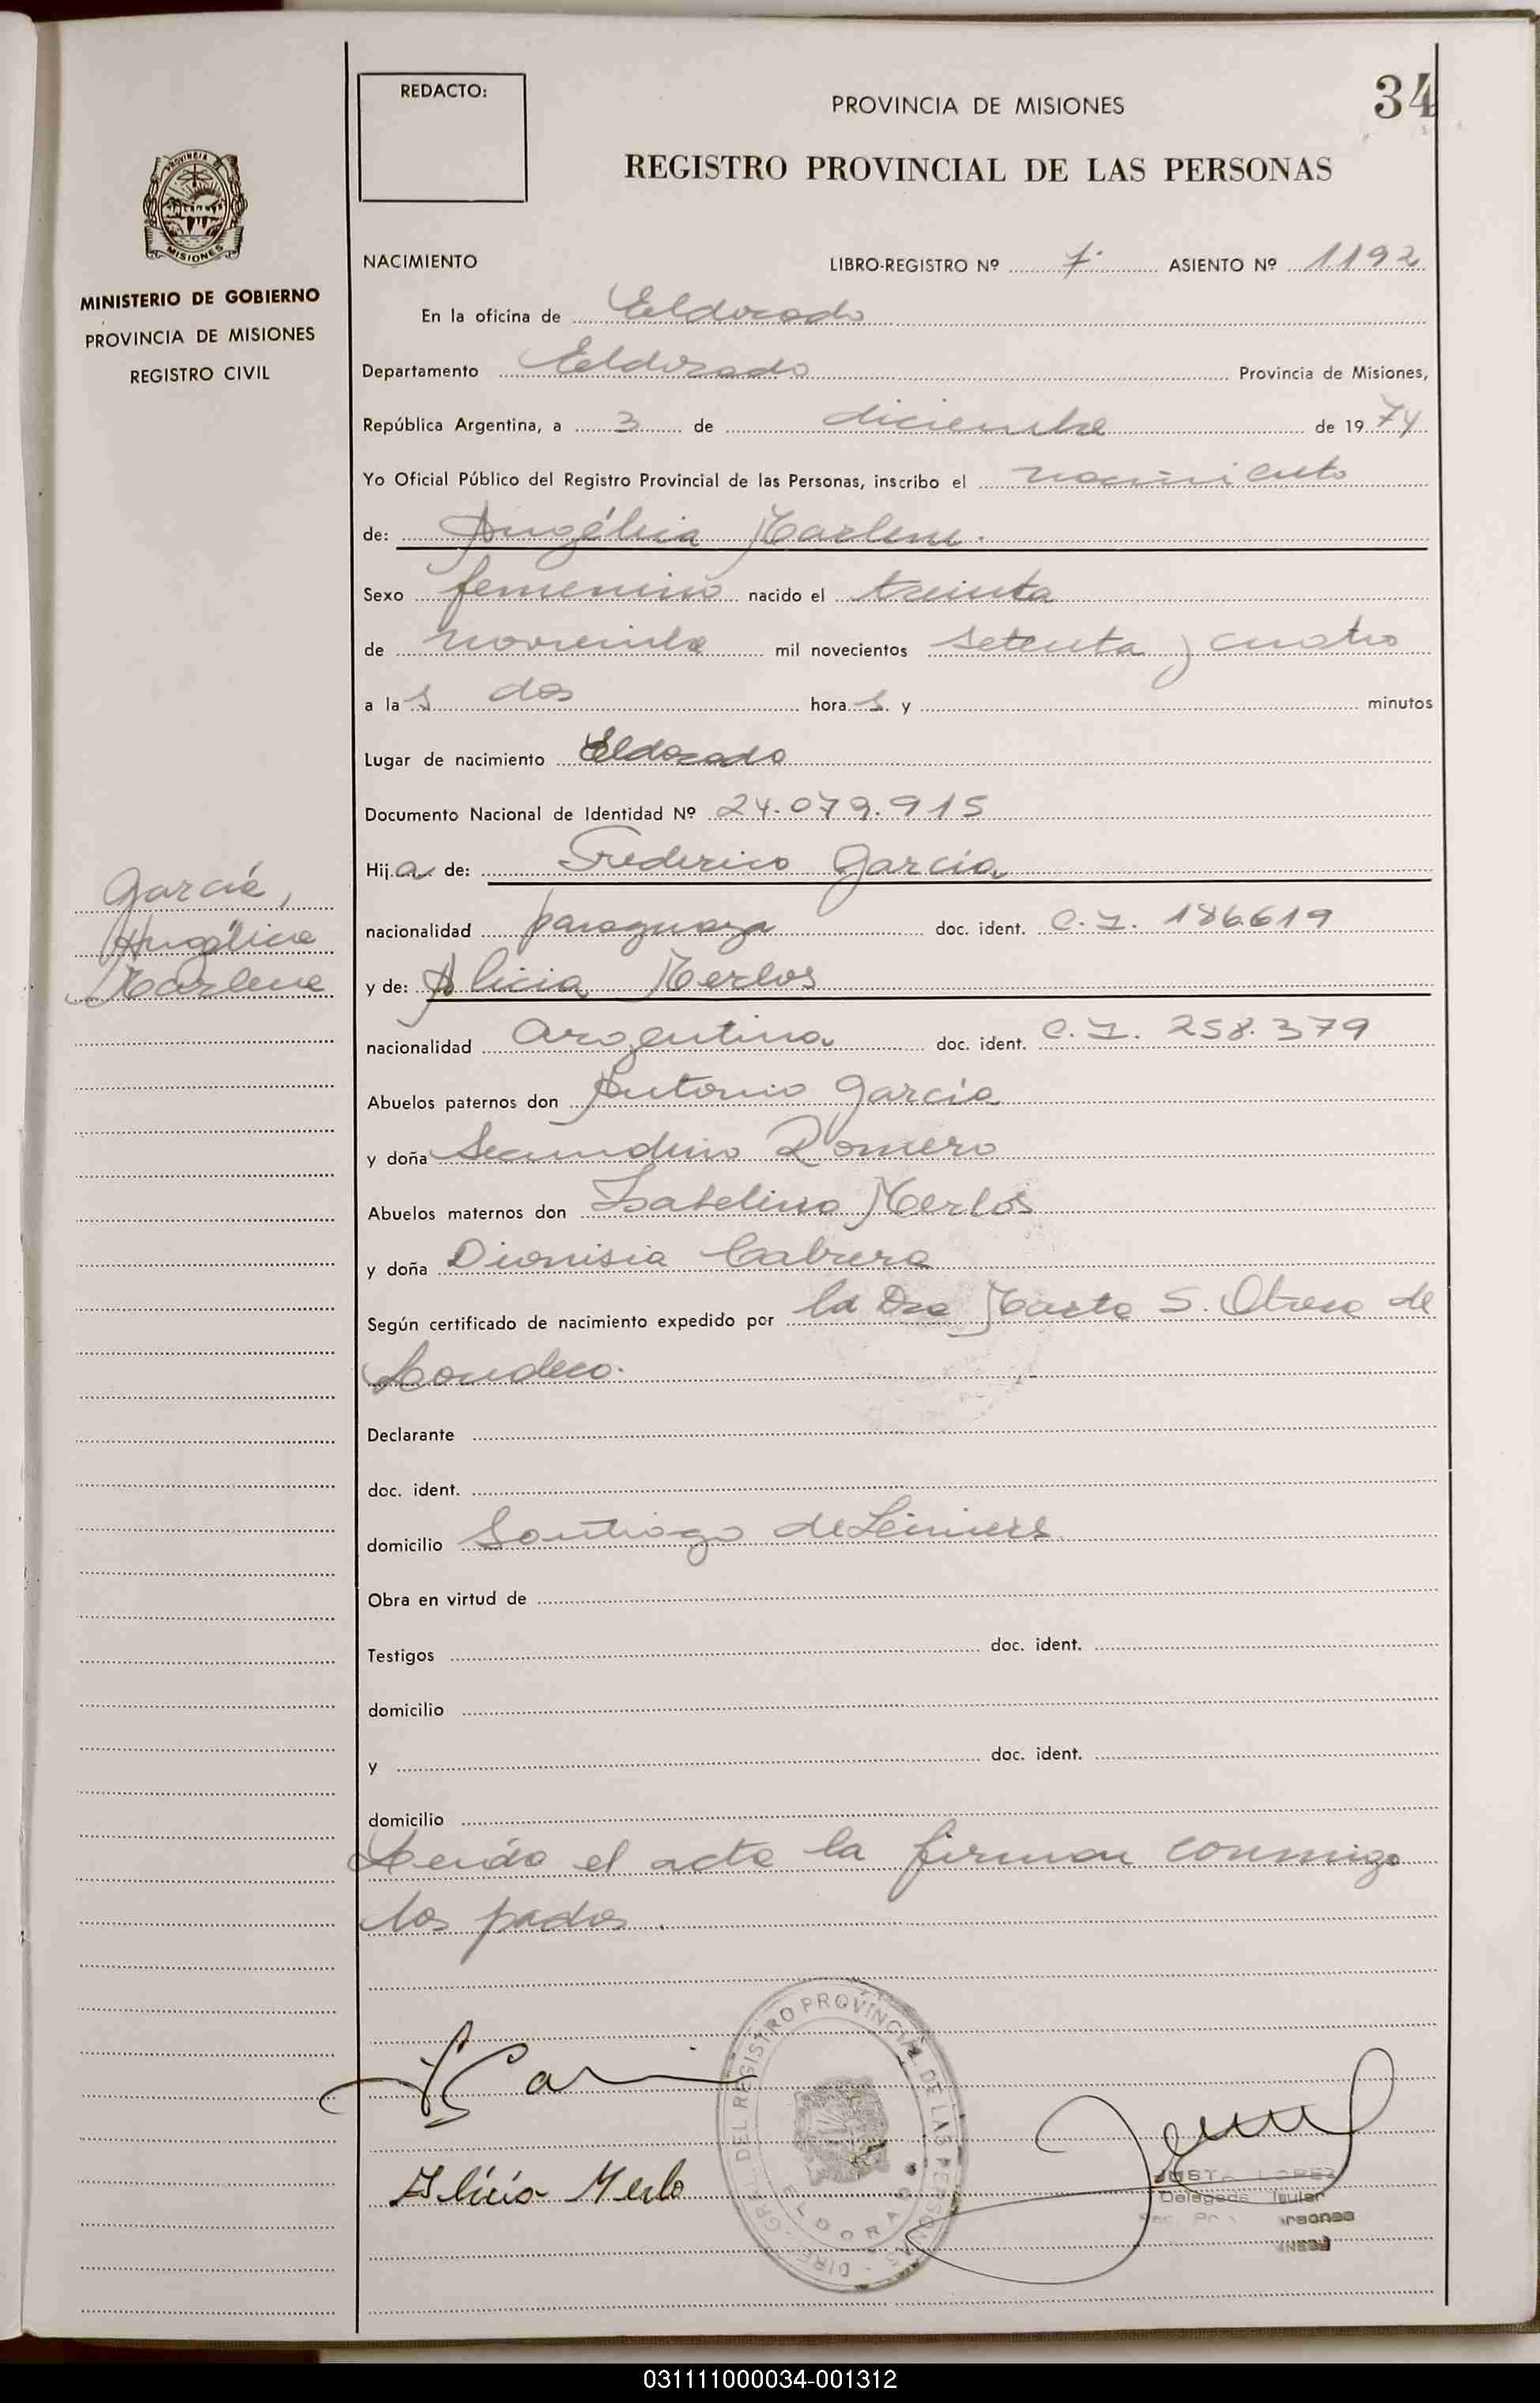 REDACTO:
PROVINCIA DE MISIONES
34
REGISTRO PROVINCIAL DE LAS PERSONAS
PROVINCIA DE MISIONES
MINISTERIO DE GOBIERNO
PROVINCIA DE MISIONES
REGISTRO CIVIL
NACIMIENTO LIBRO-REGISTRO Nº 7º ASIENTO Nº 1192
En la oficina de Eldorado
Departamento Eldorado Provincia de Misiones,
República Argentina, a 3 de diciembre de 1974
Yo Oficial Público del Registro Provincial de las Personas, inscribo el nacimiento
de: Angélica Marlene.
Sexo femenino nacido el treinta
de noviembre mil novecientos setenta y cuatro
a las dos horas y minutos
Lugar de nacimiento Eldorado
Documento Nacional de Identidad Nº 24.079.915
Hija de: Frederico García
nacionalidad paraguaya doc. ident. C.I. 186619
y de: Alicia Merlos
nacionalidad argentina doc. ident. C.I. 258.379
Abuelos paternos don Antonio García
y doña Secundina Romero
Abuelos maternos don Isabelino Merlos
y doña Dionisia Cabrera
Según certificado de nacimiento expedido por la Dra Marta S. de
Declarante
doc. ident.
domicilio Santiago de Liniers
Obra en virtud de
Testigos doc. ident.
domicilio
y doc. ident.
domicilio
Leída el acta la firman conmigo
los padres.
García,
Angélica
Marlene
Alicia Merlo
DIRE. GRAL. DEL REGISTRO PROVINCIAL DE LAS PERSONAS
ELDORADO
LOPEZ
Titular
031111000034-001312